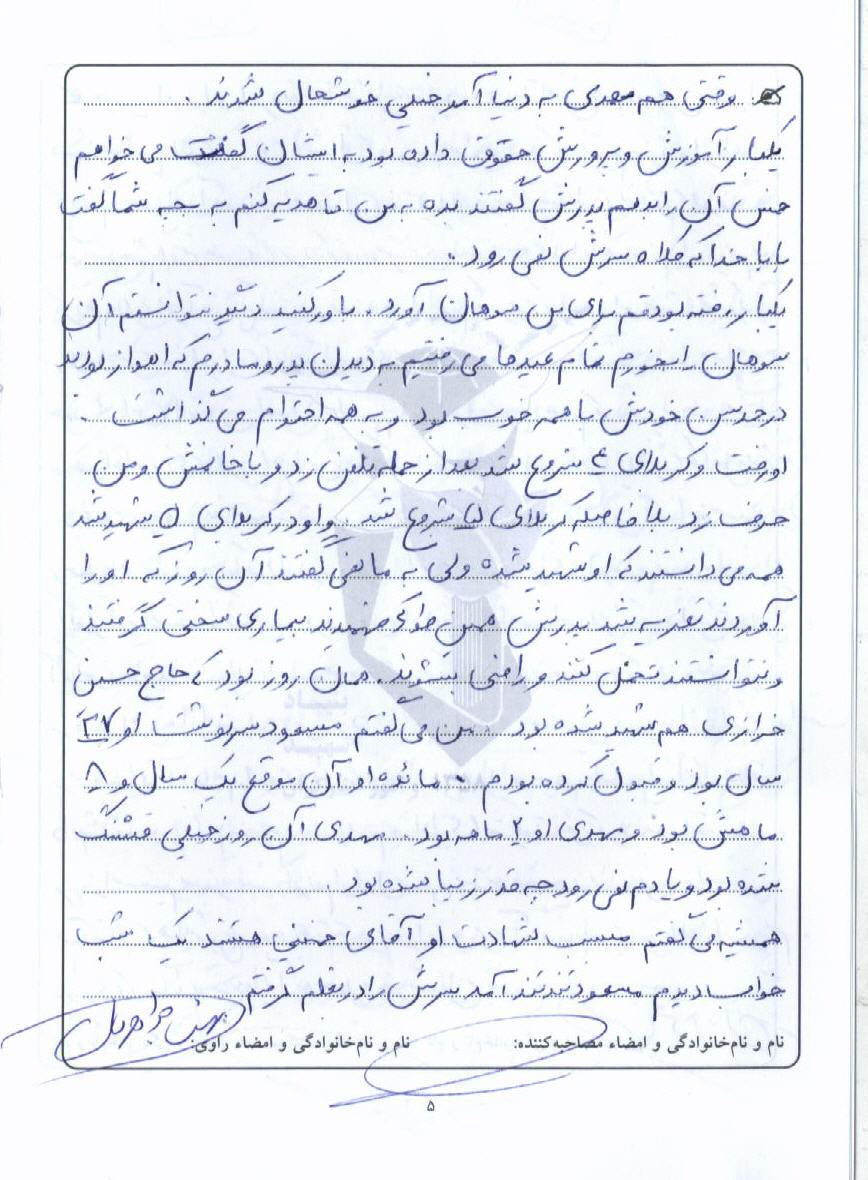 وقتی هم مهدی به دنیا آمد خیلی خوشحال شدند.
یکبار آموزش و پرورش حقوق داده بود به ایشان گفت می خواهم
خمس آن را بدهم پدرش گفتند بده به من تا هدیه کنم به جبهه شما گفت
بابا خدا که کلاه سرش نمی رود.
یکبار رفته بود قم برای من سوهان آورد. باور کنید دیگر نتوانستم آن
سوهان را بخورم تمام عیدها می رفتیم به دیدن پدر و مادرم که اهواز بودند
در حد سن خودش با همه خوب بود و به همه احترام می گذاشت.
او رفت و کربلای ۴ شروع شد بعد از حمله تلفن زد و با خانمش و من
حرف زد بلافاصله کربلای ۵ شروع شد و او در کربلای ۵ شهید شد
همه می دانستند که او شهید شده ولی به ما نمی گفتند آن روز که او را
آوردند تشییع شد پدرش همین طور که فهمیدند بیماری سختی گرفتند
و نتوانستند تحمل کنند و راضی بشوند. همان روز بود که حاج حسین
خرازی هم شهید شده بود. من می گفتم مسعود سرنوشت او ۲۷
سال بود و قبول کرده بودم. مائده او آن موقع یک سال و ۸
ماهش بود و مهدی او ۲ ماهه بود. مهدی آن روز خیلی قشنگ
شده بود و یادم نمی رود چه قدر زیبا شده بود.
همیشه می گفتم مسبب شهادت او آقای خمینی هستند یک شب
خواب دیدم مسعود تند تند آمد سرش را در بغلم گرفتم
نام و نام‌خانوادگی و امضاء مصاحبه‌کننده: نام و نام‌خانوادگی و امضاء راوی:
۵